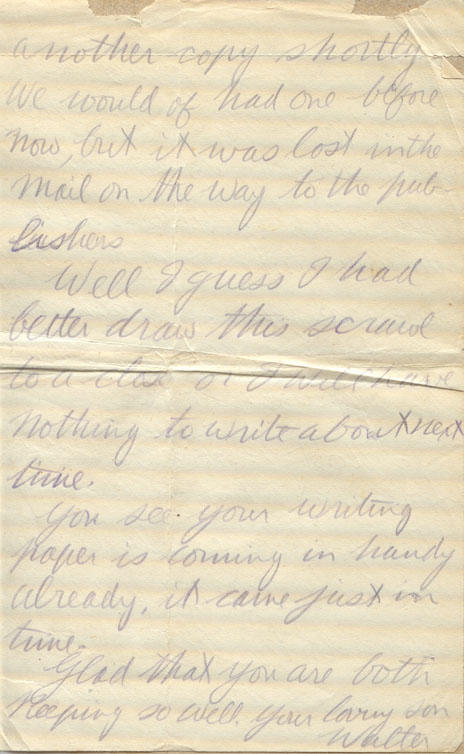 another copy shortly
We would of had one before
now, but it was lost in the
mail on the way to the pub-
lishers
Well I guess I had
better draw this scrawl
to a close or I will have
nothing to write about next
time.
You see your writing
paper is coming in handy
already, it came just in
time.
Glad that you are both
keeping so well. Your loving son
Walter